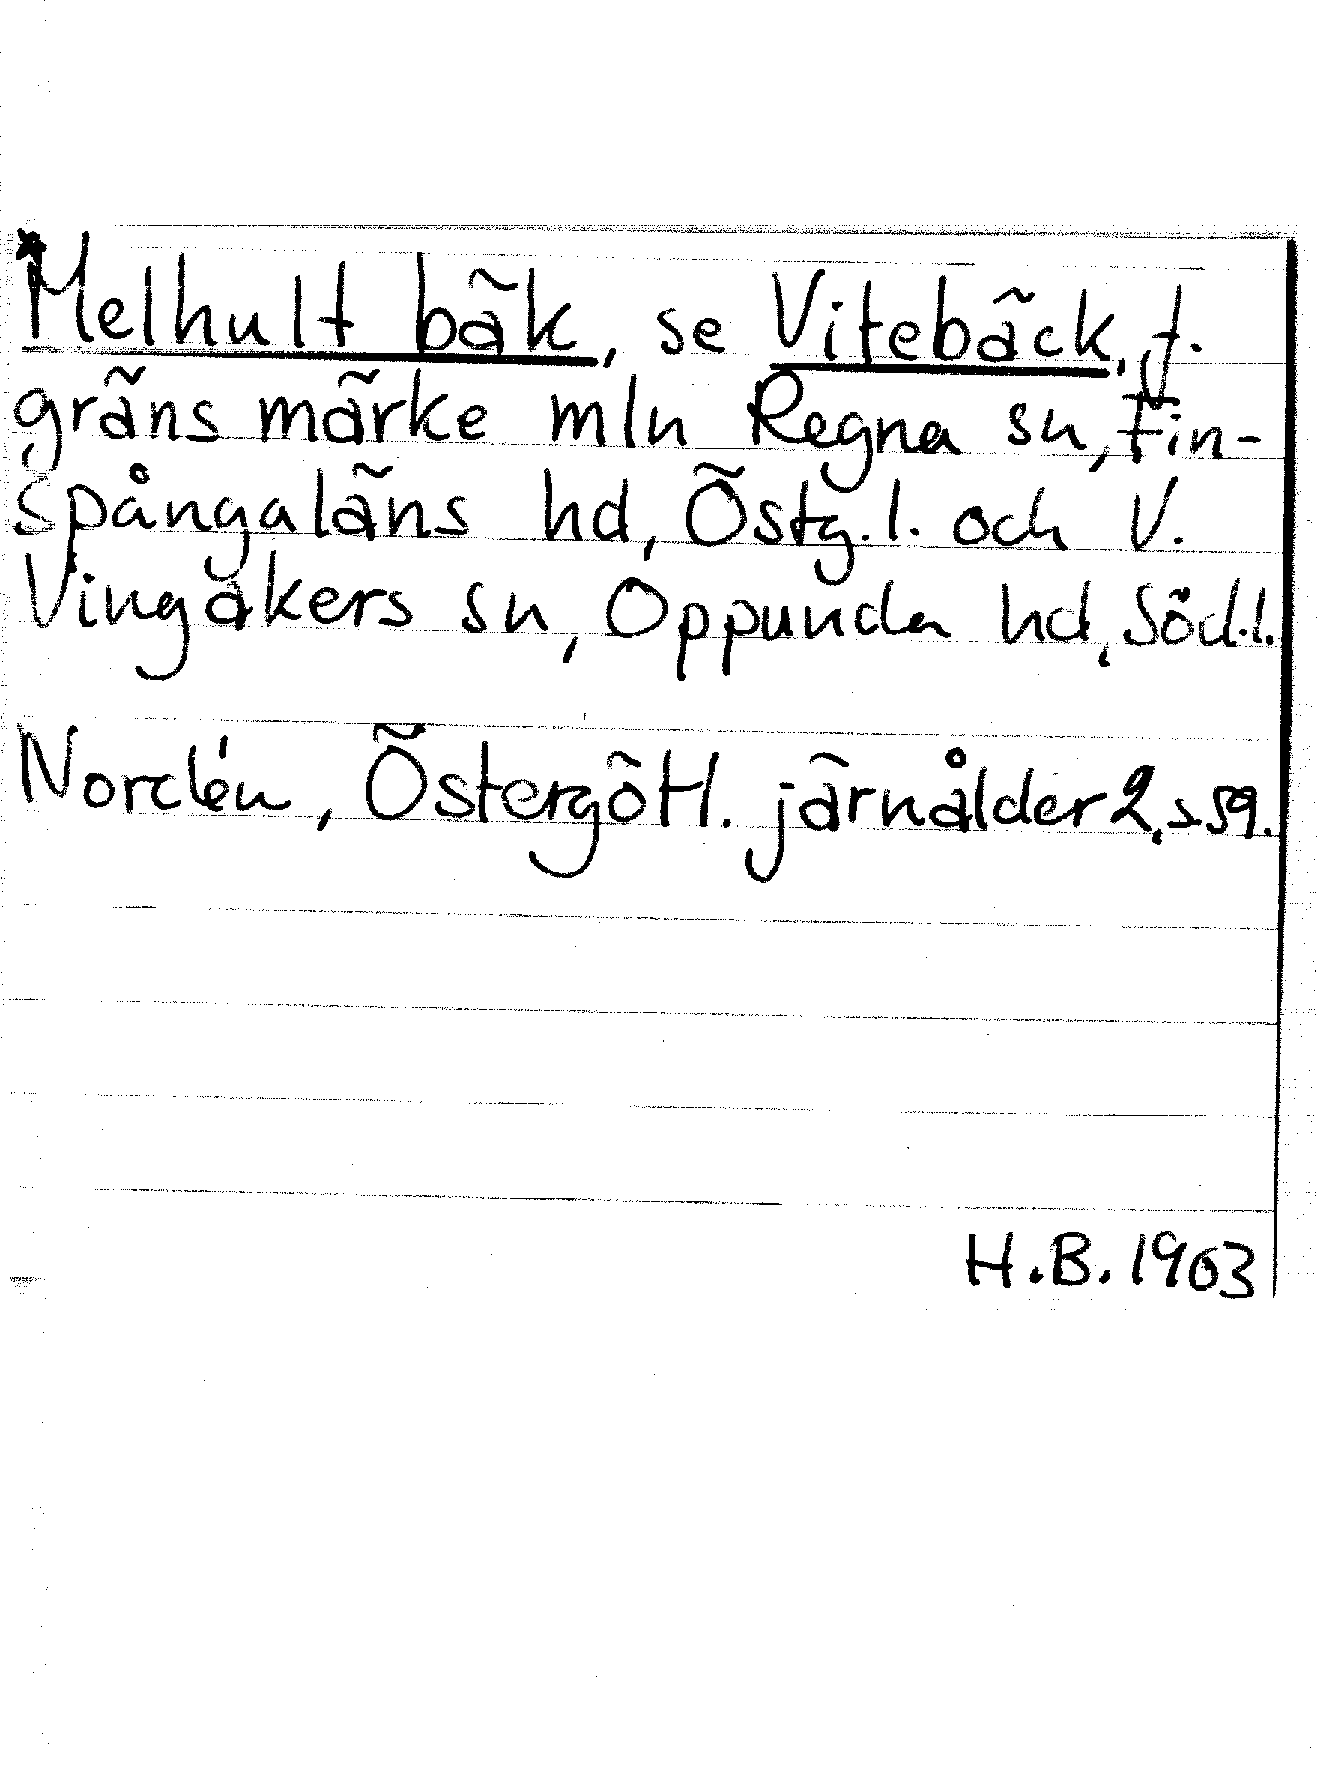 *Melhult bäk, se Vitebäck, f.
gräns märke mln Regna sn, Fin-
spångaläns hd, Östg. l. och V.
Vingåkers sn, Oppunda hd, Söd.l.
Nordén, Östergötl. järnålder 2, s 59.
H.B. 1903